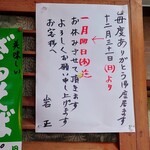 毎度ありがとう御座居ます
十二月三十一日(日)より
一月四日(木)迄
お休みさせて頂きます
よろしくお願い申し上げます
お客様へ
岩正